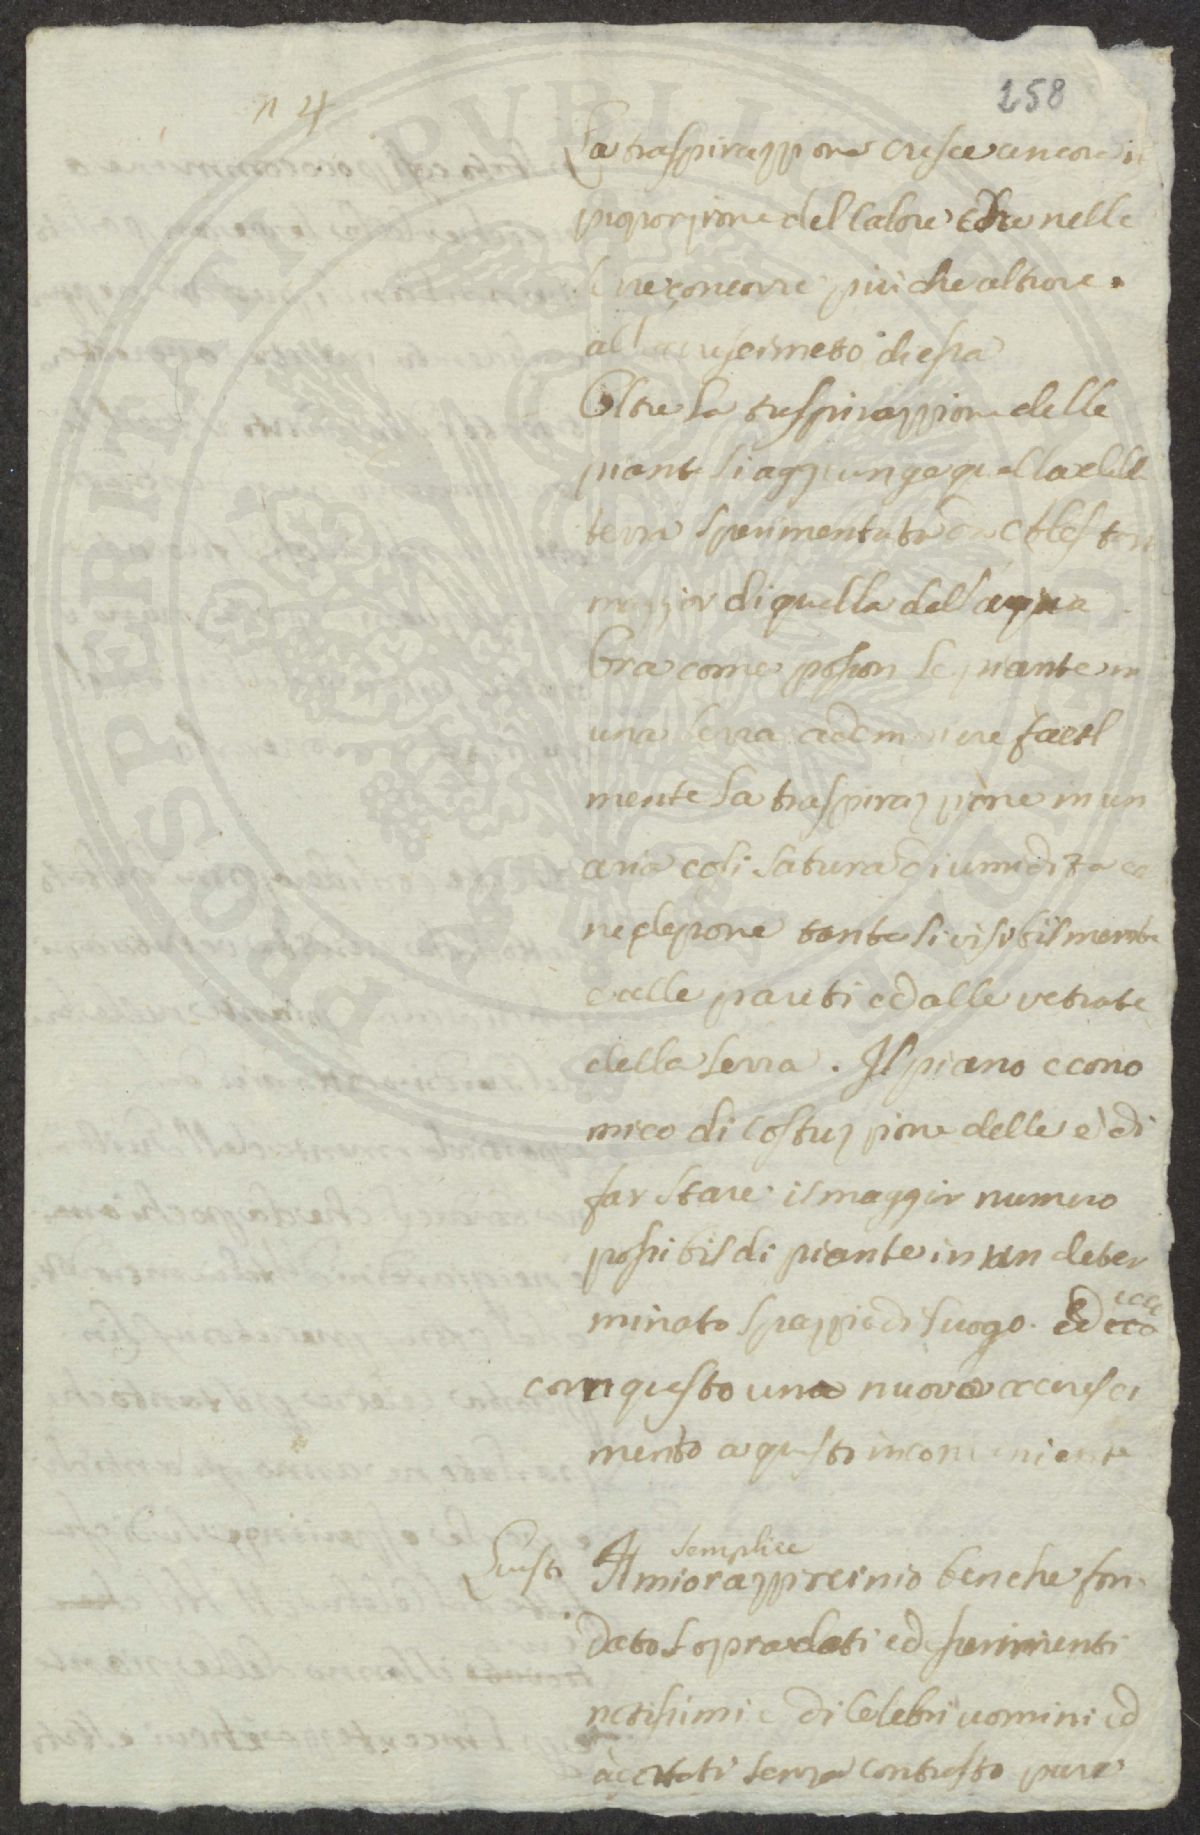 n 4
258
La traspirazzione cresce ancora in
proporzione del Calore che nelle
concorre più che altrove
all acrescimeto di essa
Oltre la traspirazzione delle
piante si aggiunge quella della
terra sperimentata da
maggior di quella dell aqua
Ora come posson le piante in
una serra adempiere facil
mente la traspirazzione in un
aria cosi satura di umidita
tanto si visibilmente
dalle pareti e dalle vetrate
della serra. Il piano econo
mico di Costuzione delle è di
far stare il maggior numero
possibil di piante in un deter
minato spazzio di luogo. Ed ecco
con questo una nuovo acresci
mento a questo inconveniente
Questi
semplice
Il mio razzocinio benche fon
dato sopra dati ed sperimenti
notissimi e di Celebri uomini ed
acettati senza contrasto pure
PROSPERITATI PVBLICAE